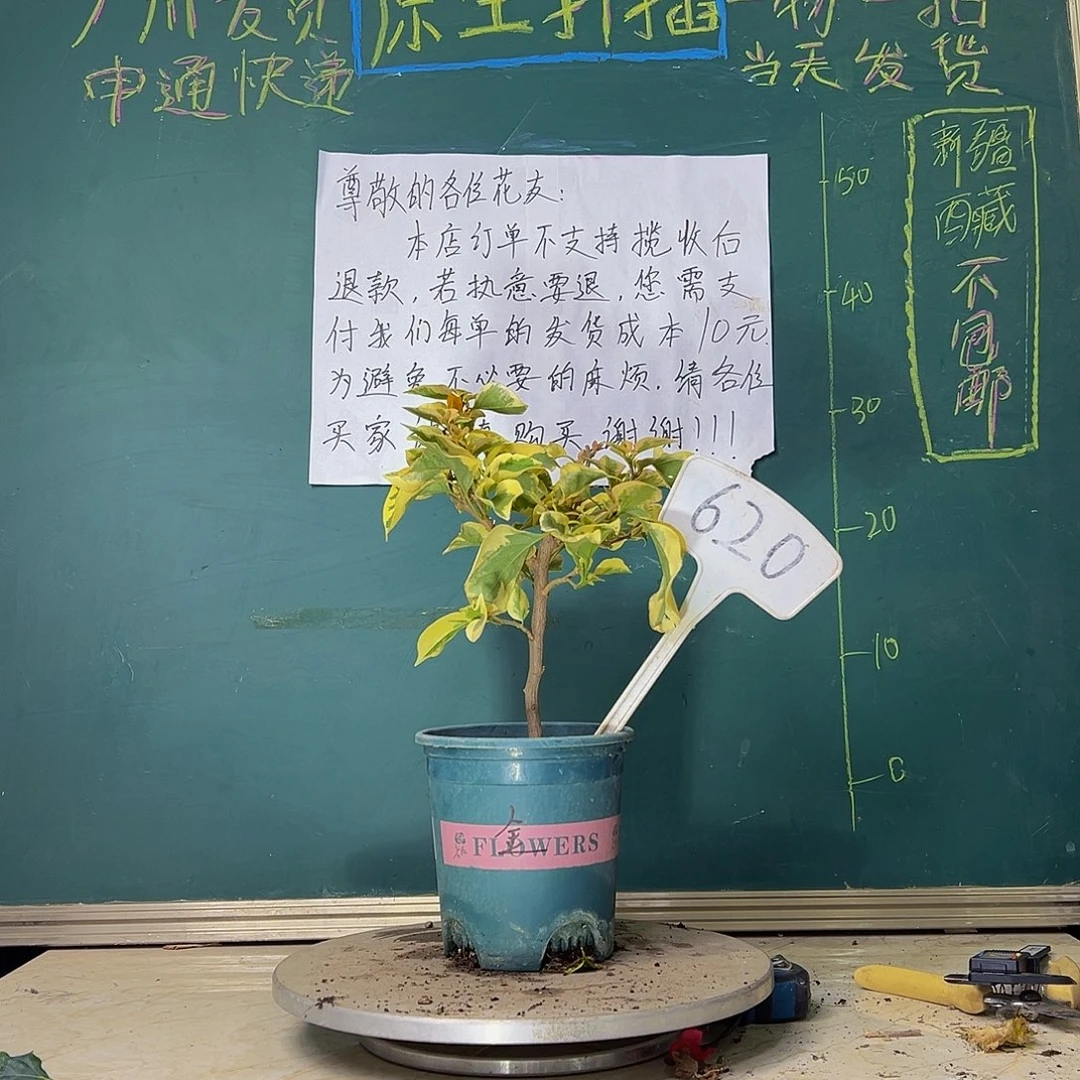 广州发货 原土扦插 一物一拍
申通快递 当天发货
尊敬的各位花友:
本店订单不支持揽收后
退款,若执意要退,您需支
付我们每单的发货成本10元.
为避免不必要的麻烦.请各位
买家 购买 谢谢!!!
新疆
西藏
不
同
邮
50
40
30
20
10
0
620
FLOWERS
金